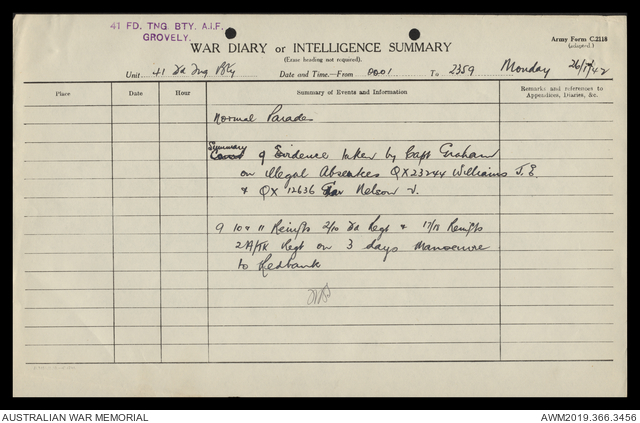 41 FD. TNG. BTY. A.I.F.
GROVELY.
Army Form C.2118
(adapted.)
WAR DIARY or INTELLIGENCE SUMMARY
(Erase heading not required).
Unit 41 Fd Tng Bty Date and Time.—From 0001 To 2359 Monday 26/1/42
Place Date Hour Summary of Events and Information Remarks and references to
Appendices, Diaries, &c.
Normal Parades
Summary
of Evidence taken by Capt Graham
on illegal Absentees QX23244 Williams J.E.
& QX 12636 Nelson J.
9 10 & 11 Reinfts 2/10 Fd Regt & 17/18 Reinfts
Regt on 3 days Manoeuvre
to Redbank
AUSTRALIAN WAR MEMORIAL
AWM2019.366.3456